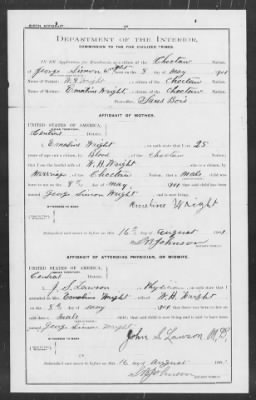 BIRTH AFFIDAVIT.
DEPARTMENT OF THE INTERIOR.
COMMISSION TO THE FIVE CIVILIZED TRIBES.
IN RE Application for Enrollment, as a citizen of the Choctaw Nation,
of George Simon Wright born on the 8 day of May 1901
Name of Father: W.H. Wright a citizen of the Choctaw Nation.
Name of Mother: Emaline Wright a citizen of the Choctaw Nation.
Postoffice
AFFIDAVIT OF MOTHER.
UNITED STATES OF AMERICA,
INDIAN TERRITORY,
Central District.
I, Emaline Wright, on oath state that I am 25
years of age and a citizen, by Blood of the Choctaw Nation;
that I am the lawful wife of W.H. Wright who is a citizen, by
Marriage of the Choctaw Nation; that a male child
was born to me on the 8th day of May 1901 that said child has been
named George Simon Wright and is now living.
Emaline Wright
WITNESSES TO MARK:
Subscribed and sworn to before me this 16th day of August 1901
NOTARY PUBLIC.
AFFIDAVIT OF ATTENDING PHYSICIAN, OR MIDWIFE.
UNITED STATES OF AMERICA,
INDIAN TERRITORY,
Central District.
I, J.S. Lawson, a Physician, on oath state that I
attended on Emaline Wright wife of W.H. Wright
on the 8th day of May 1901 that there was born to her on
said date a male child; that said child is now living and is said to have been
named George Simon Wright
John S. Lawson M.D.
WITNESSES TO MARK:
Subscribed and sworn to before me this 16 day of August 1901
NOTARY PUBLIC.